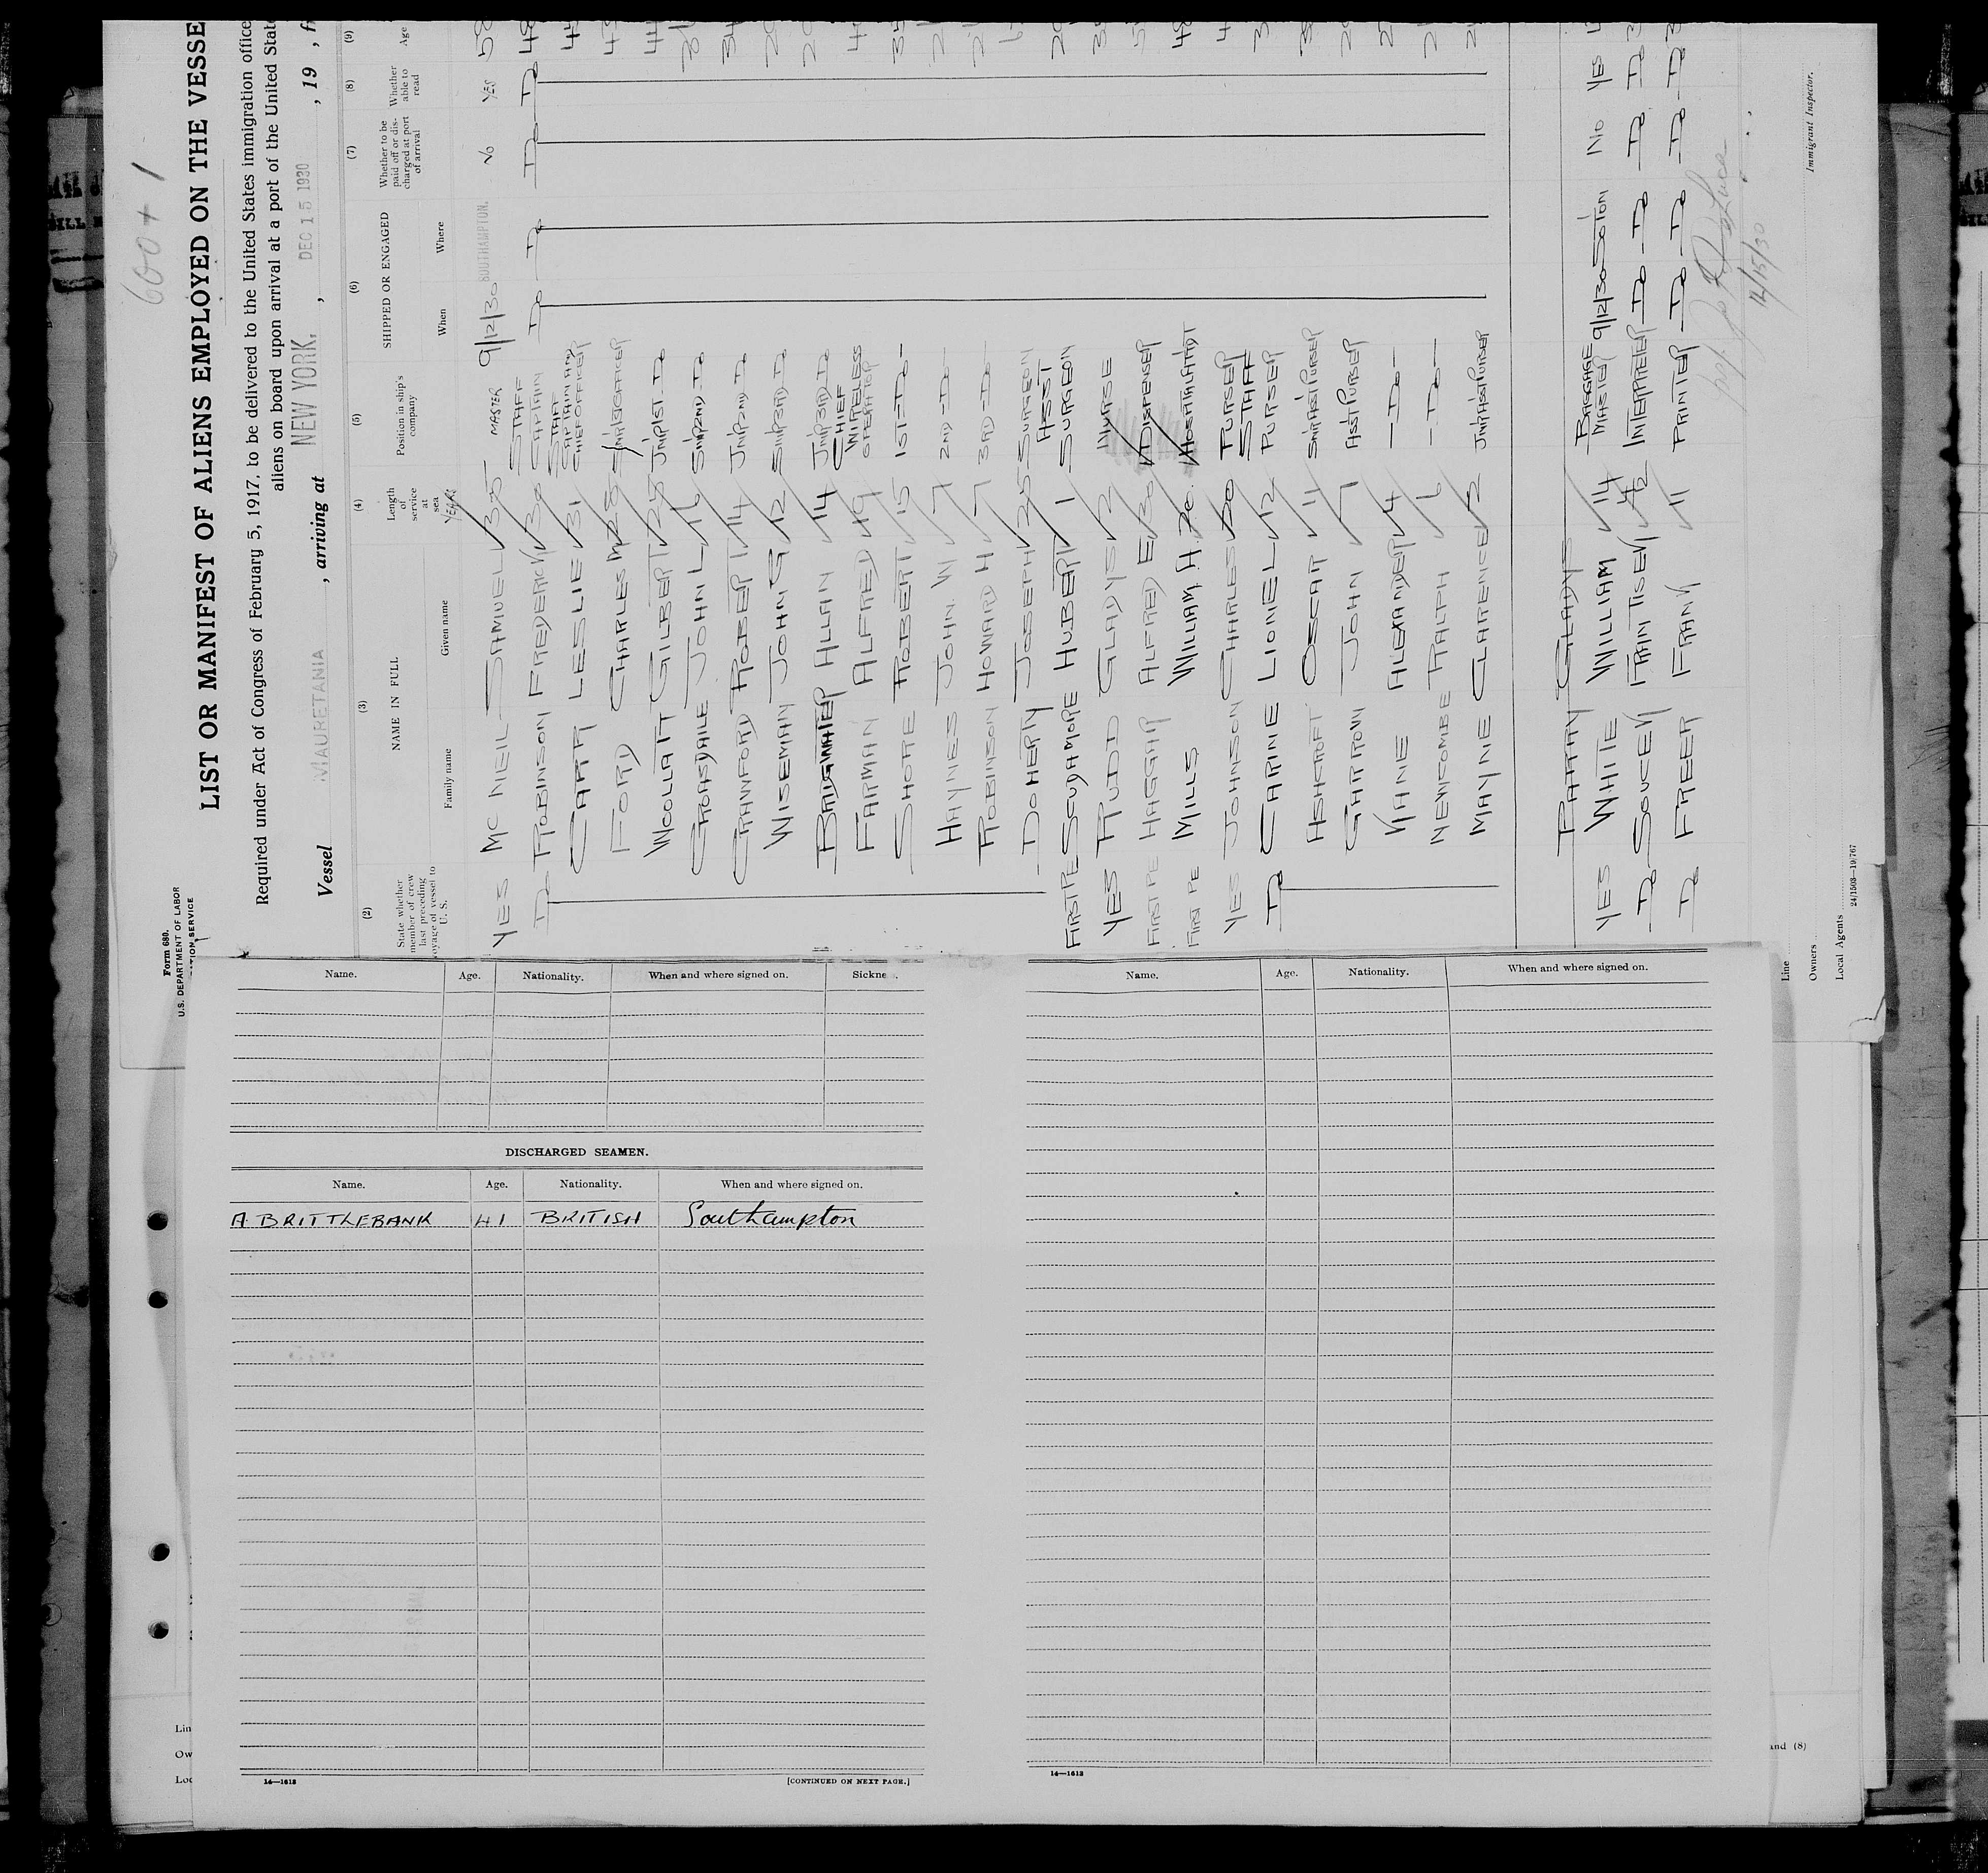 600 + 1
Form 680.
U.S. DEPARTMENT OF LABOR
LIST OR MANIFEST OF ALIENS EMPLOYED ON THE VESSE
Required under Act of Congress of February 5, 1917, to be delivered to the United States immigration office
aliens on board upon arrival at a port of the United Stat
Vessel MAURETANIA , arriving at NEW YORK. , DEC 15 1930 , 19 , fr
(2) (3) (4) (5) (6) (7) (8) (9)
State whether member of crew last preceding voyage of vessel to U. S.
NAME IN FULL
Family name Given name
Length of service at sea YEARS
Position in ship's company
SHIPPED OR ENGAGED
When Where
Whether to be paid off or discharged at port of arrival
Whether able to read
Age
YES MC NEIL SAMUEL 35 MASTER 9/12/30 SOUTHAMPTON. No YES
Do ROBINSON FREDERICK 30 STAFF CAPTAIN Do Do Do Do
CARR LESLIE 31 STAFF CAPTAIN AND CHIEF OFFICER
FORD CHARLES M 28
WOOLLATT GILBERT 25 JNR 1ST Do
CROASDAILE JOHN L 16 SNR 2ND Do
CRAWFORD ROBERT 14 JNR 2ND Do
WISEMAN JOHN G 12 SNR 3RD Do
BRIDGWATER ALLAN 14 JNR 3RD Do
FARMAN ALFRED 19 CHIEF WIRELESS OPERATOR
SHORE ROBERT 15 1ST Do
HAYNES JOHN. W 7 2ND Do
ROBINSON HOWARD H 7 3RD Do
DOHERTY JOSEPH 25 SURGEON
FIRST RE SCUDAMORE HUBERT 1 ASST SURGEON
YES RUDD GLADYS 2 NURSE
FIRST RE HAGGAR ALFRED E 30 DISPENSER
FIRST RE MILLS WILLIAM. H. 20 HOSP. ATTNDT
YES JOHNSON CHARLES 20 PURSER
Do CARINE LIONEL 12 STAFF PURSER
ASHCROFT OSCAR 11 SNR ASST PURSER
GARROW JOHN 7 ASST PURSER
KANE ALEXANDER 4 Do
NEWCOMBE RALPH 6 Do
MAYNE CLARENCE 2 JNR ASST PURSER
PARRY GLADYS
YES WHITE WILLIAM 14 BAGGAGE MASTER 9/12/30 SOTON No YES
Do SOUCEK FRANTISEK INTERPRETER Do Do Do Do
Do FREER FRANK 11 PRINTER Do Do Do Do
12/15/30
Immigrant Inspector.
Line
Owners
Local Agents
24/1503—19/767
Name. Age. Nationality. When and where signed on. Sickne
DISCHARGED SEAMEN.
Name. Age. Nationality. When and where signed on.
A. BRITTLEBANK 41 BRITISH Southampton
14—1613
[CONTINUED ON NEXT PAGE.]
Name. Age. Nationality. When and where signed on.
14—1613
Lin
Ow
Loc
and (8)